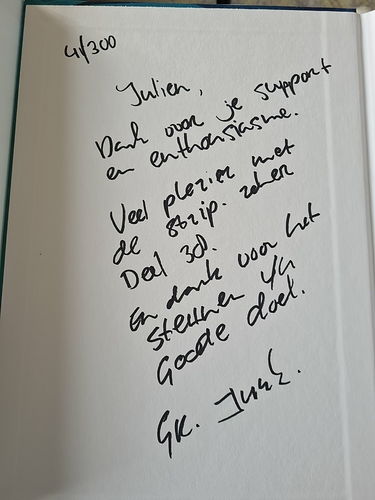 4/300
Julien,
Dank voor je support
en enthousiasme.
Veel plezier met
de strip. zeker
Deel 3d.
En dank voor het
steunen v/h
Goede doel.
GR.